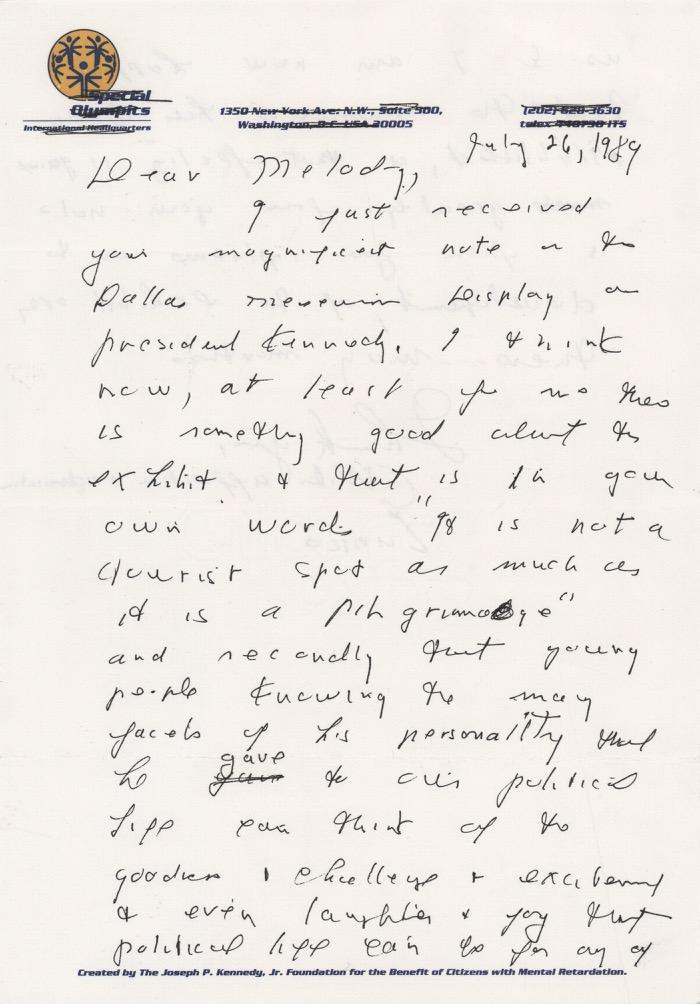 Special
Olympics
International Headquarters
1350 New York Ave. N.W., Suite 500,
Washington, D.C. USA 20005
(202) 628-3630
telex
July 26, 1989
Dear Melody,
I just received
your magnificent note on the
Dallas museum Display on
president Kennedy. I think
now, at least for me there
is something good about the
exhibit & that is in your
own words "It is not a
tourist spot as much as
it is a pilgrimage"
and secondly that young
people knowing the many
facets of his personality that
he gave to our political
life can think of the
goodness, challenge + excitement
& even laughter + joy that
political life can be for any of
Created by The Joseph P. Kennedy, Jr. Foundation for the Benefit of Citizens with Mental Retardation.